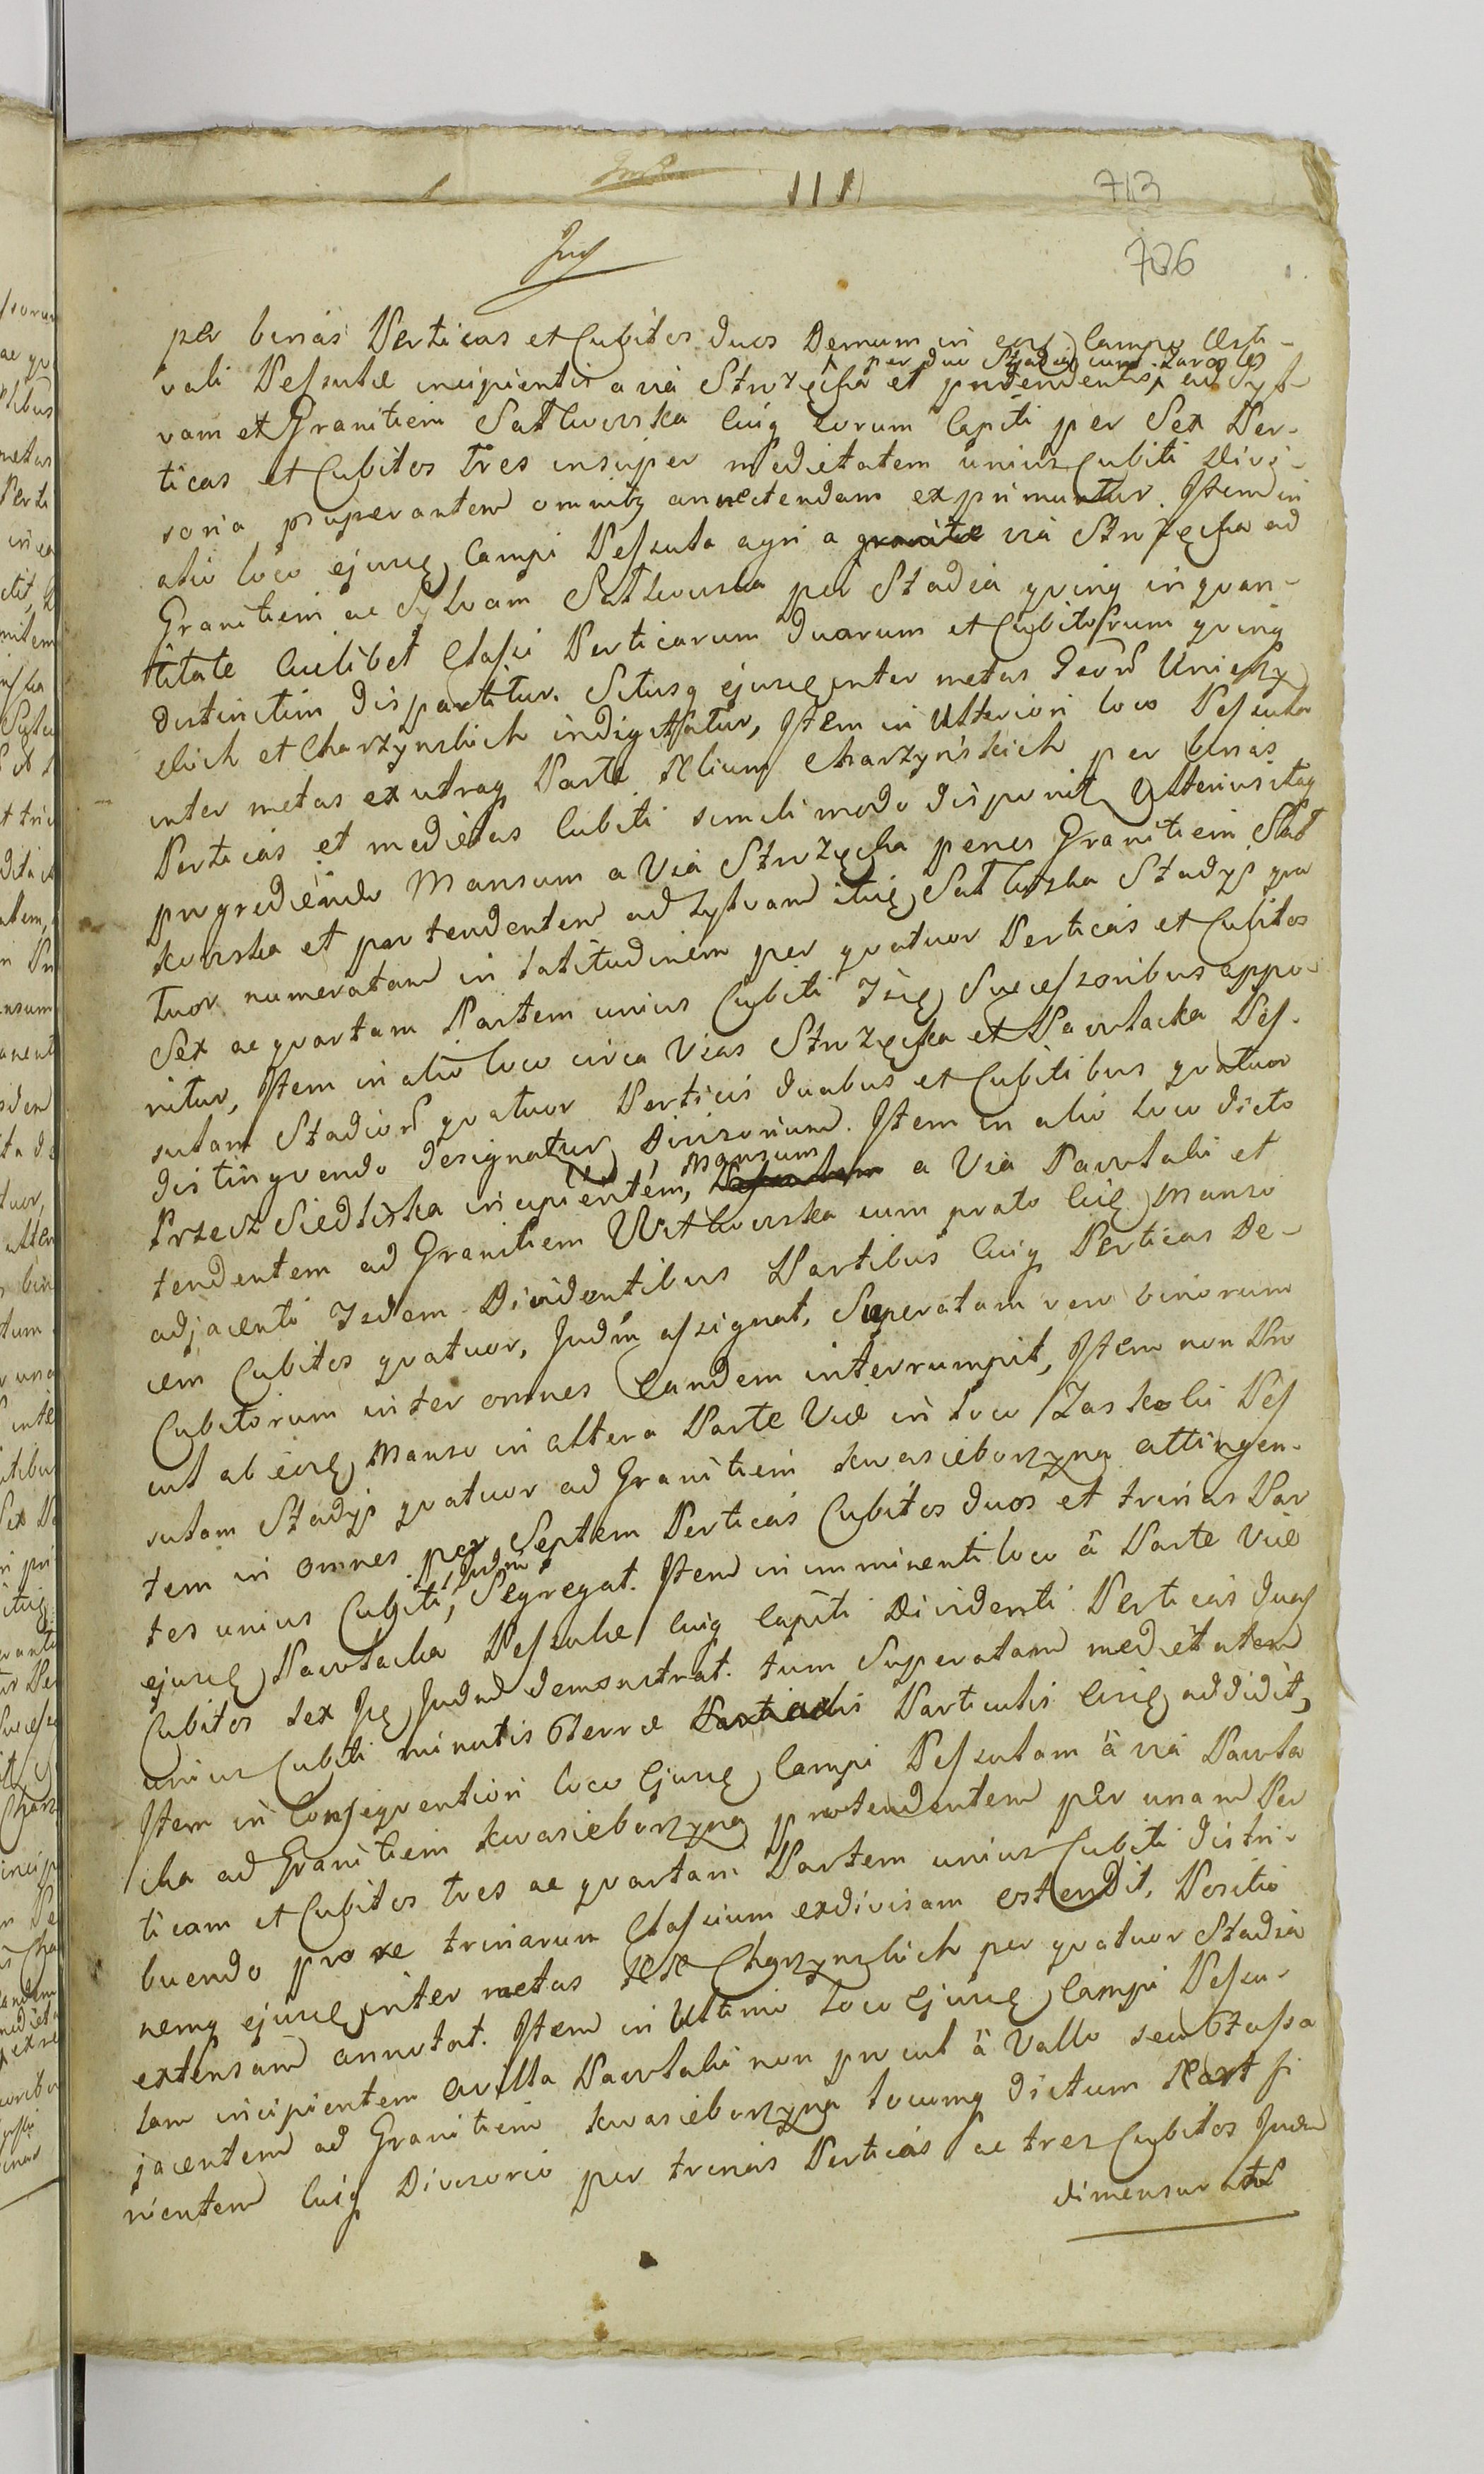 713
706
per binas Perticas et Cubitos duos Demum in Campo Æsti-
vali Pessulæ incipientis a via Strzęcka et protendentis, ad Syl-
per duo Stadia cum Zarośle
vam et Granitiem Satkowska cuiq eorum Capiti per Sex Per-
ticas et Cubitos Tres insuper medietatem unius Cubiti Divi-
soria superantem omnibz annectendam exprimuntur. Item in
alio loco ejusdę Campi Pessula agri a granite via Strzęcka ad
Granitiem ac Sylvam Satkowska per Stadia qvinq in qvan-
titate Cuilibet Classi Perticarum duarum et Cubitorum qvinq
distinctim dispartitur. Situsq ejusdę inter metas
skich et Charzynskich indigitatur, Item in Ulteriori loco Pessula
inter metas ex utraq Parte Charzyńskich per binas
Perticas et medietas Cubiti simili modo disponit Ulterius itaq
progrediendo Mansum a Via Strzęcka penes Granitiem Sat
kowska et protendentem ad Sylvam Satkowska Stadys qva
tuor numeratam in latitudinem per qvatuor Perticas et Cubitos
Sex ac qvartam Partem unius Cubiti Successoribus appo-
nitur, Item in alio loco circa Vias Strzęcka et Pawłacka Pes-
sulam qvatuor Perticis duabus et Cubitibus qvatuor
distingvendo designatur Divisorium. Item in alio loco dicto
Przecz Siedliska incipientem, Mansum a Via Pawłaki et
tendentem ad Granitiem Witkowska cum prato Manso
adjacenti Dividentibus Partibus Cuiq Perticas De-
cem Cubitos qvatuor, Judm assignat, Superatam vero binorum
Cubitorum inter omnes Eandem interrumpit, Item non Pro
cul ab Manso in altera Parte Viæ in loco Zaskolu Pes
sulam Stadys qvatuor ad Granitiem Kwasieborzyna attingen-
tem in omnes per Septem Perticas Cubitos duos et trinas Par
tes unius Cubiti, Judm Segregat. Item in imminenti loco â Parte Viæ
ejusdę Pawłacka Pessulæ Cuiq Capiti Dividenti Perticas duas
Cubitos sex Judm demonstrat. tum Superatam medietatem
unius Cubiti minutis terræ Particulis addidit,
Item in Consequentiori loco Ejusdę Campi Pessulam â via Pawła
cka ad Granitiem Kwasieborzyna protendentem per unam Per
ticam et Cubitos tres ac qvartam Partem unius Cubiti distri-
buendo pro re trinarum Classium exdivisam ostendit. Positio
nemq ejusdę inter metas Charzynskich per qvatuor Stadia
extensam annotat. Item in Ultimo loco Ejusdę Campi Pessu-
lam incipientem a villa Pawłaki non procul â Vallo seu
jacentem ad Granitiem Kwasieborzyna locumq dictum
nientem Cuiq Divisorio per trinas Perticas ac tres Cubitos Judm
dimensurat